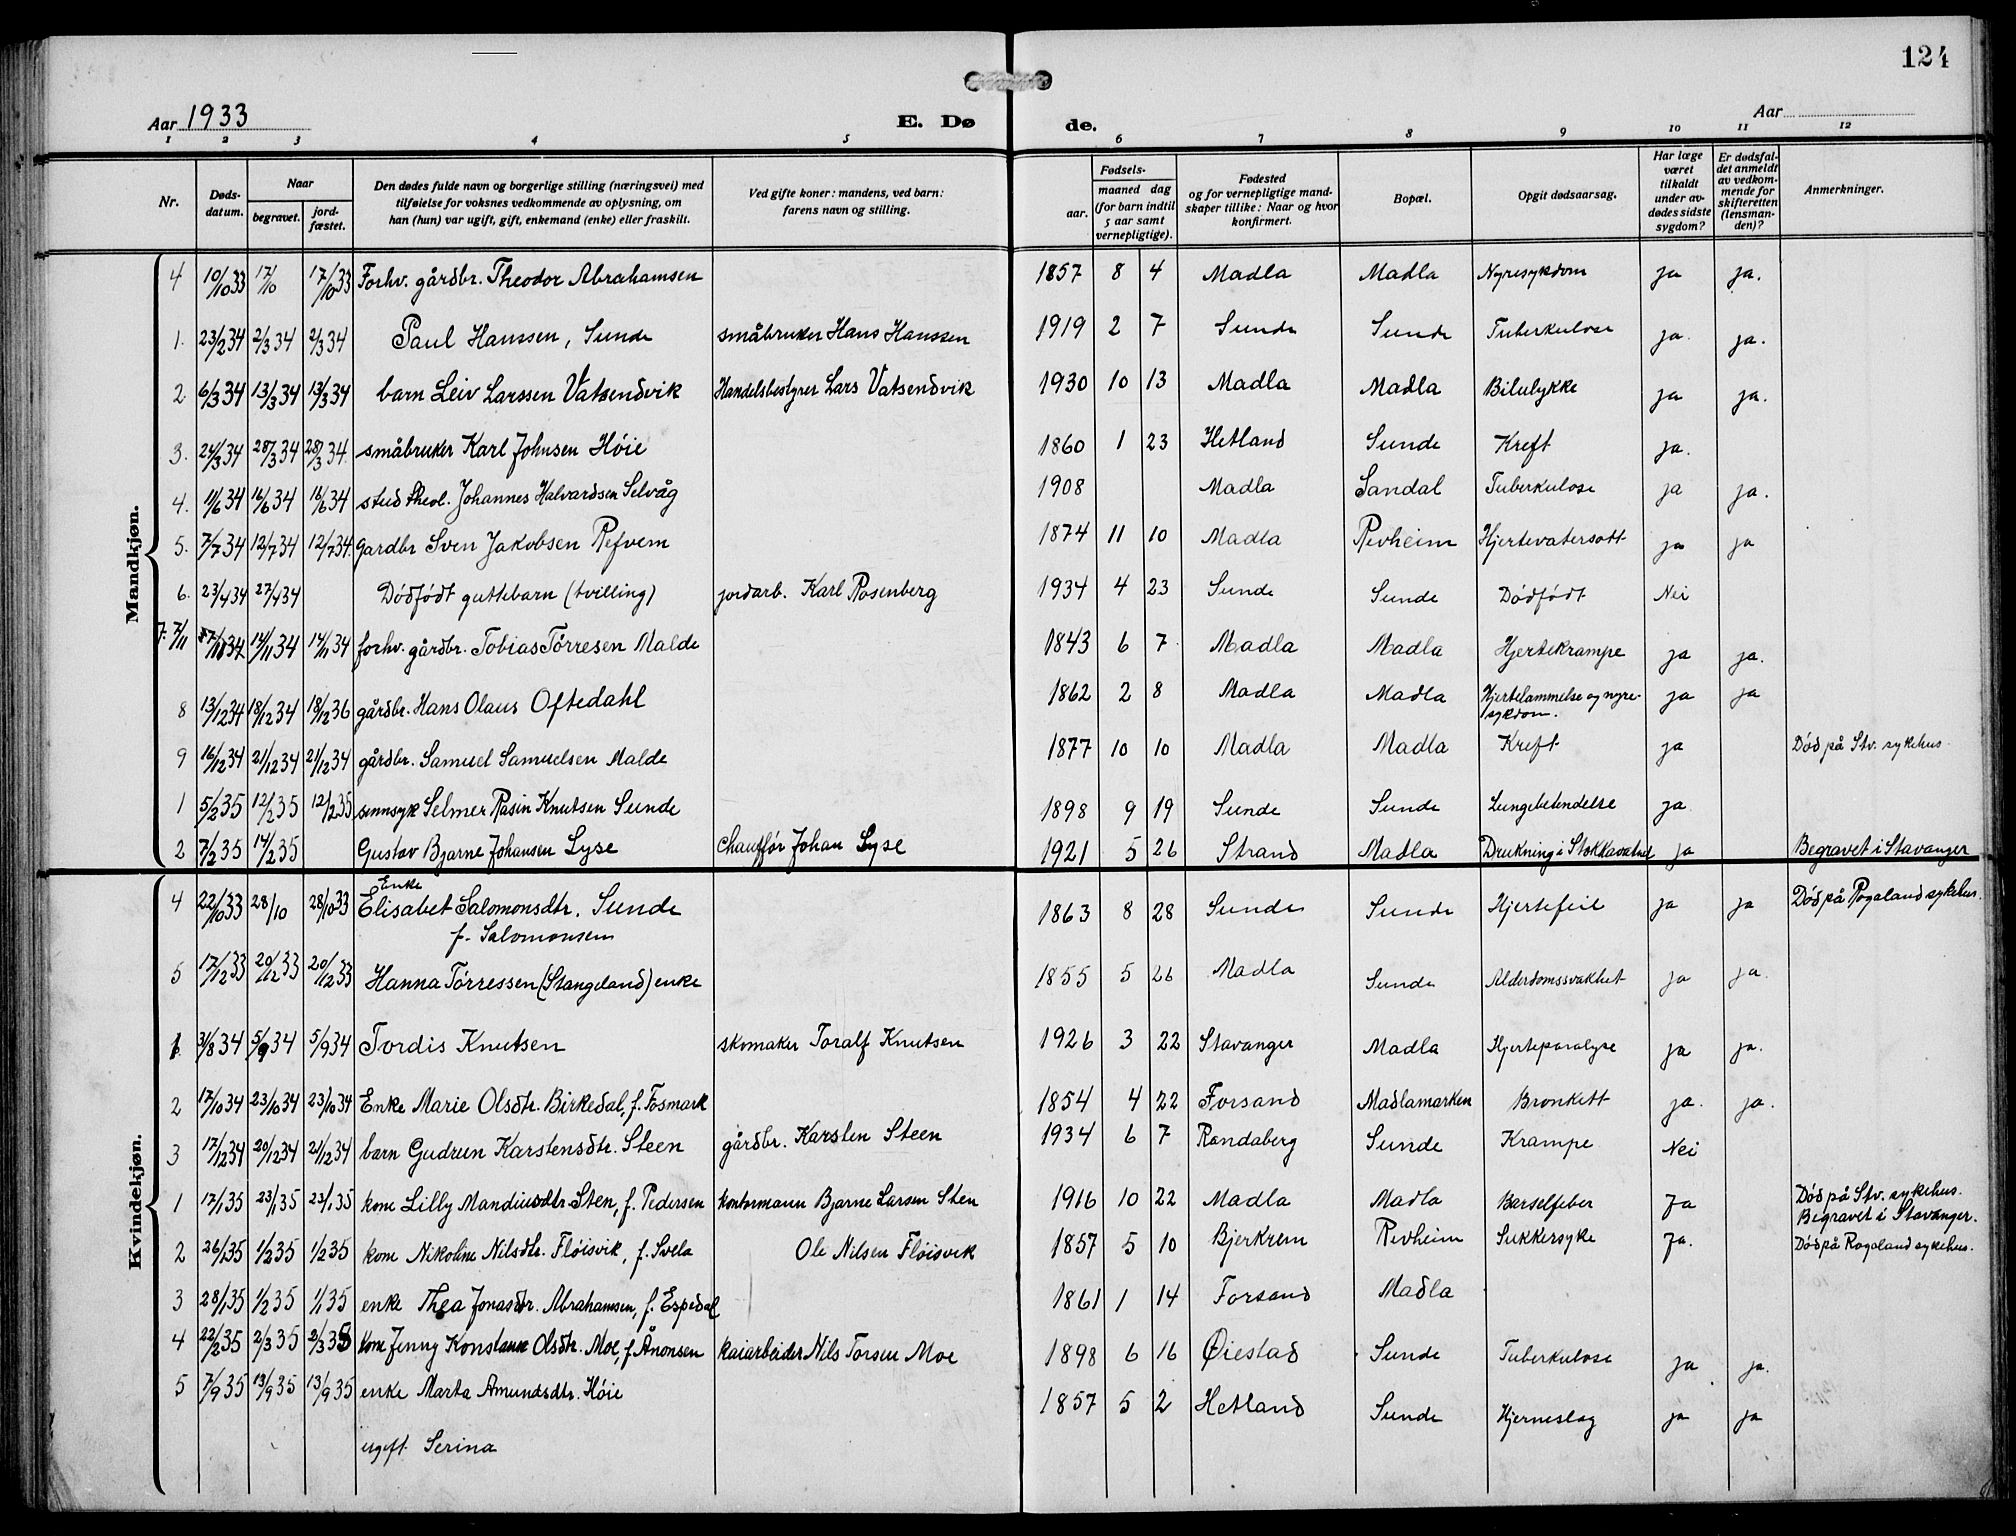 124
Aar 1933
E. Dø de.
Aar
1 2 3 4 5 6 7 8 9 10 11 12
Nr.
Døds-datum.
Naar
begravet.
jord-fæstet.
Den dødes fulde navn og borgerlige stilling (næringsvei) med
tilføielse for voksnes vedkommende av oplysning, om
han (hun) var ugift, gift, enkemand (enke) eller fraskilt.
Ved gifte koner: mandens, ved barn:
farens navn og stilling.
Fødsels-
aar.
maaned dag
(for barn indtil
5 aar samt
vernepligtige).
Fødested
og for vernepligtige mand-
skaper tillike: Naar og hvor
konfirmert.
Bopæl.
Opgit dødsaarsag.
Har læge
været
tilkaldt
under av-
dødes sidste
sygdom?
Er dødsfal-
det anmeldt
av vedkom-
mende for
skifteretten
(lensman-
den)?
Anmerkninger.
Mandkjøn.
4 10/10 33 17/10 17/10 33 Forhv. gårdbr. Theodor Abrahamsen 1857 8 4 Madla Madla Nyresykdom ja ja.
1. 23/2 34 2/3 34 2/3 34 Paul Hanssen, Sunde småbruker Hans Hanssen 1919 2 7 Sunde Sunde Tuberkulose ja. ja.
2 6/3 34 13/3 34 13/3 34 barn Leiv Larssen Vatsendvik Handelsbestyrer Lars Vatsendvik 1930 10 13 Madla Madla Bilulykke ja ja.
3. 24/3 34 28/3 34 28/3 34. småbruker Karl Johnsen Høie 1860 1 23 Hetland Sunde Kreft ja.
4. 11/6 34 16/6 34 16/6 34 stud theol. Johannes Halvardsen Selvåg 1908 Madla Sandal Tuberkulose ja ja.
5. 7/7 34 12/7 34 12/7 34 gardbr Sven Jakobsen Refvem 1874 11 10 Madla Revheim Hjertevatersott ja ja
6. 23/4 34 27/4 34 Dødfødt guttebarn (tvilling) jordarb. Karl Rosenberg 1934 4 23 Sunde Sunde Dødfødt Nei
7. 7/11 34 14/11 34 14/11 34 forhv. gårdbr. Tobias Tørresen Malde 1843 6 7 Madla Madla Hjertekrampe ja ja.
8 13/12 34 18/12 34 18/12 36 gårdbr. Hans Olaus Oftedahl 1862 2 8 Madla Madla Hjertelammelse og nyre- ja ja
sykdom.
9 16/12 34 21/12 34 21/12 34 gårdbr. Samuel Samuelsen Malde 1877 10 10 Madla Madla Kreft ja Død på Stv. sykehus.
1 5/2 35 12/2 35 12/2 35 sinnsyk Selmer Rasin Knutsen Sunde 1898 9 19 Sunde Sunde Lungebetendelse ja.
2 7/2 35 14/2 35 Gustav Bjarne Johansen Lyse Chauffør Johan Lyse 1921 5 26 Strand Madla Drukning i Stokkavatnet ja Begravet i Stavanger
Kvindekjøn.
Enke
4 22/10 33 28/10 28/10 33 Elisabet Salomonsdtr. Sunde 1863 8 28 Sunde Sunde Hjertefeil ja ja Død på Rogaland sykehus.
f. Salomonsen
5 17/12 33 20/12 33 20/12 33 Hanna Tørressen (Stangeland) enke 1855 5 26 Madla Sunde Alderdomssvakhet ja ja.
1. 31/8 34 5/9 34 5/9 34 Tordis Knutsen skomaker Toralf Knutsen 1926 3 22 Stavanger Madla Hjerteparalyse ja ja.
2 17/10 34 23/10 34 23/10 34 Enke Marie Olsdtr. Birkedal, f. Fosmark 1854 4 22 Forsand Madlamarken Bronkitt ja. ja.
3 17/12 34 20/12 34 21/12 34 barn Gudrun Karstensdtr. Steen gårdbr. Karsten Steen 1934 6 7 Randaberg Sunde Krampe Nei
1 17/1 35 23/1 35 23/1 35 kone Lilly Mandiusdtr Sten, f. Pedersen kontormann Bjarne Larsen Sten 1916 10 22 Madla Madla Barselfeber Ja Død på Stv. sykehus.
Begravet i Stavanger.
2 26/1 35 1/2 35 1/2 35 kone Nikoline Nilsdtr. Fløisvik, f. Svela Ole Nilsen Fløisvik 1857 5 10 Bjerkrem Revheim Sukkersyke Ja. Død på Rogaland sykehus.
3 28/1 35 1/2 35 1/1 35 enke Thea Jonasdtr. Abrahamsen, f. Espedal 1861 1 14 Forsand Madla
4 22/2 35 2/3 35 2/3 35 kone Jenny Konstanse Olsdtr. Moe, f. Ånonsen kaiarbeider Nils Torsen Moe 1898 6 16 Øiestad Sunde Tuberkulose ja ja.
5 7/9 35 13/9 35 13/9 35 enke Marta Amundsdtr. Høie 1857 5 2 Hetland Sunde Hjerneslag ja ja
ugift. Serina